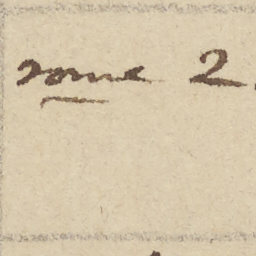 some 2.